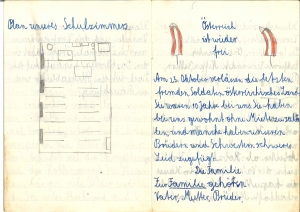 Plan unseres Schulzimmers
Österreich
ist wieder
frei.
Am 25. Oktober verliessen die letzten
fremden Soldaten österreichisches Land.
Sie waren 10 Jahre bei uns. Sie haben
bei uns gewohnt ohne Miete zu zahlen
und manche haben unseren
Brüdern und Schwestern schweres
Leid zugefügt.
Die Familie.
Zur Familie gehören:
Vater, Mutter, Brüder,